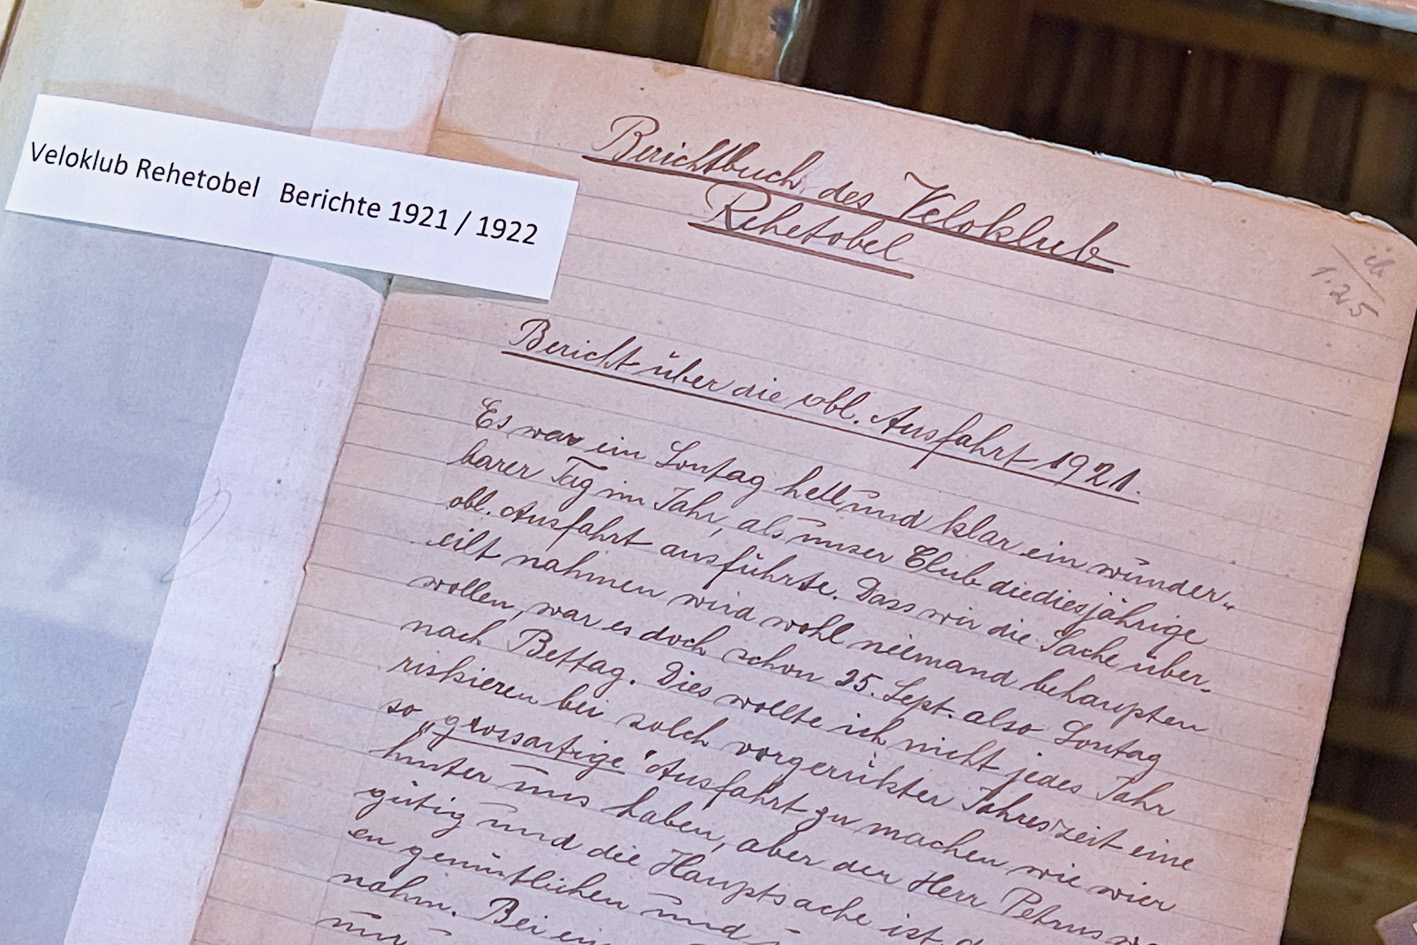 Veloklub Rehetobel Berichte 1921 / 1922
Berichtbuch des Veloklub
Rehetobel
1.25
Bericht über die obl. Ausfahrt 1921.
Es war ein Sontag hell und klar ein wunder-
barer Tag im Jahr, als unser Club die diesjährige
obl. Ausfahrt ausführte. Dass wir die Sache über-
eilt nahmen wird wohl niemand behaupten
wollen, war es doch schon 25. Sept. also Sontag
nach Bettag. Dies wollte ich nicht jedes Jahr
riskieren bei solch vorgerükter Jahreszeit eine
so „grossartige" Ausfahrt zu machen wie wier
hinter uns haben, aber der Herr Petrus
gütig und die Hauptsache ist
en gemütlichen und
nahm. Bei
nur